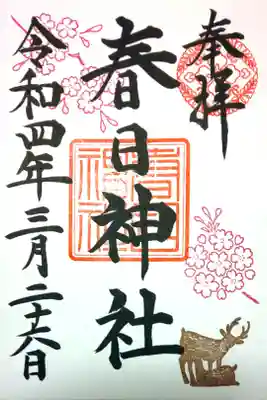 奉拝
春日神社
令和四年三月二十六日